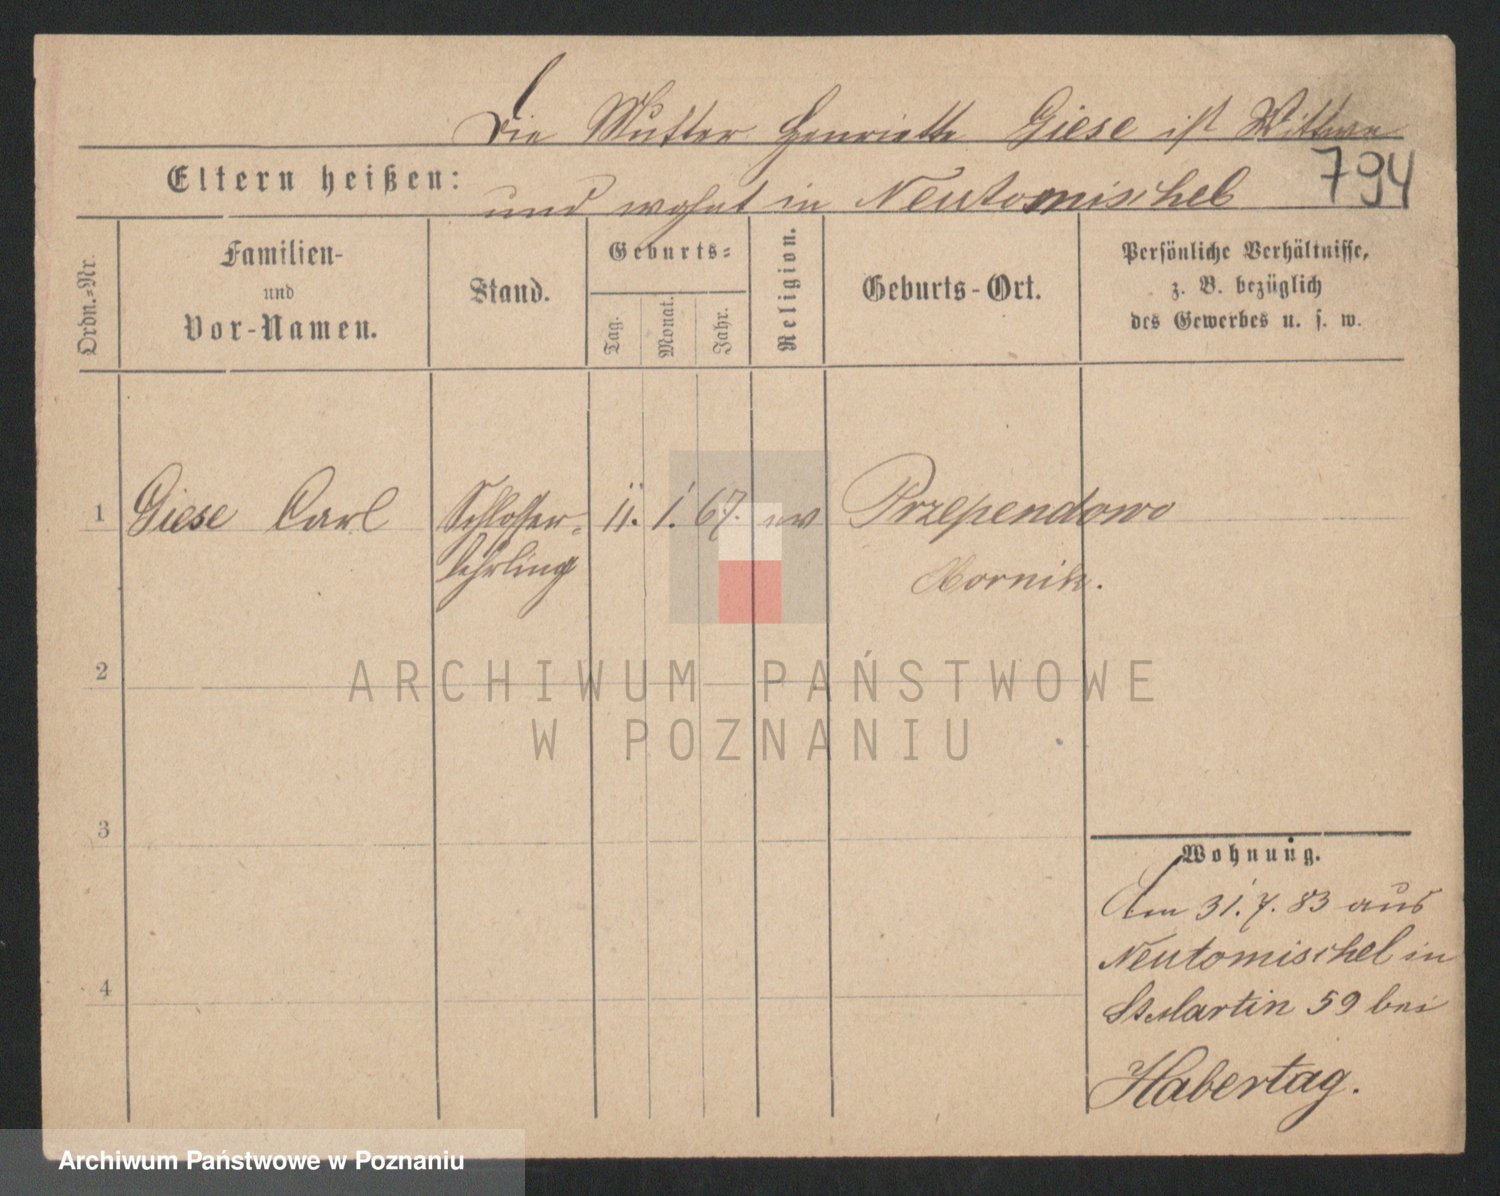 Die Mutter Henriette Giese ist Wittwe
Eltern heißen: und wohnt in Neutomischel
794
Ordn.-Nr.
Familien-
und
Vor-Namen.
Stand.
Geburts-
Tag.
Monat.
Jahr.
Religion.
Geburts-Ort.
Persönliche Verhältnisse,
z. B. bezüglich
des Gewerbes u. s. w.
1 Giese Carl Schlosser- 11. 1. 67. ev Przependowo
lehrling
2
3
4
Wohnung.
Am 31. 7. 83 aus
Neutomischel in
St Martin 59 bei
Habertag.
ARCHIWUM PAŃSTWOWE
W POZNANIU
Archiwum Państwowe w Poznaniu